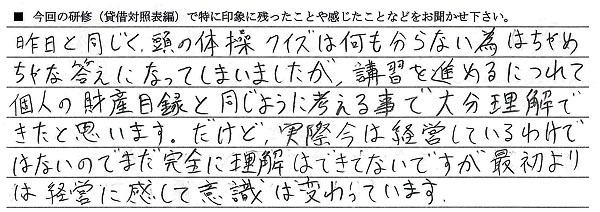 ■ 今回の研修（貸借対照表編）で特に印象に残ったことや感じたことなどをお聞かせ下さい。
昨日と同じく、頭の体操クイズは何も分らない為はちゃめ
ちゃな答えになってしまいましたが、講習を進めるにつれて
個人の財産目録と同じように考える事で大分理解で
きたと思います。だけど、実際今は経営しているわけで
はないのでまだ完全に理解はできてないですが最初より
は経営に感して意識は変わっています.